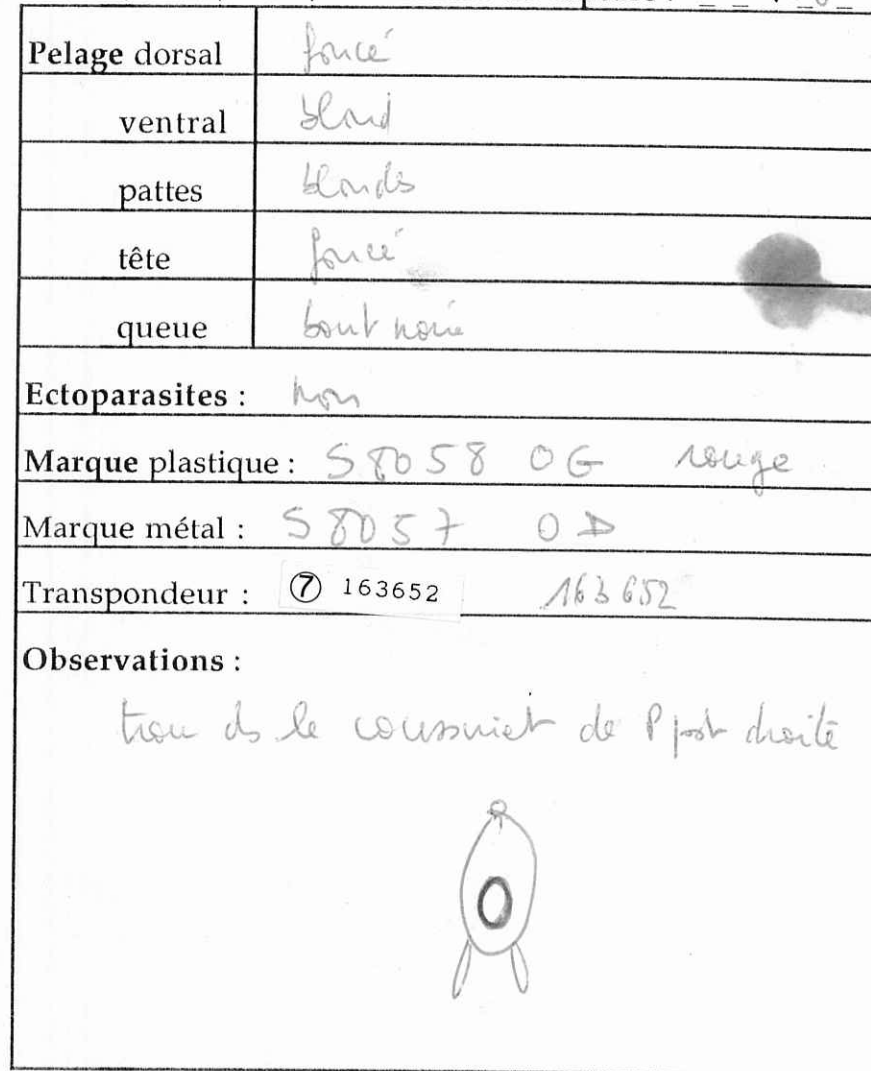 Pelage dorsal foncé
ventral blond
pattes blonds
tête foncé
queue bout noir
Ectoparasites : non
Marque plastique : S8058 OG rouge
Marque métal : S8057 OD
Transpondeur : ⑦ 163652 163652
Observations :
trou ds le coussinet de P post droite